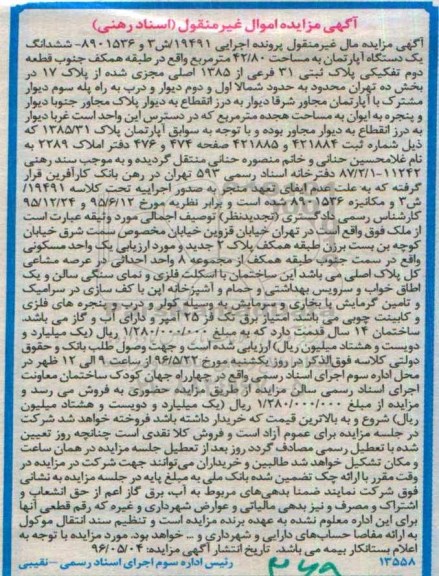 آگهی مزایده اموال غیرمنقول (اسناد رهنی)
آگهی مزایده مال غیرمنقول پرونده اجرایی ۱۹۴۹۱/ش۳ و ۸۹۰۱۵۳۶- ششدانگ
یک دستگاه آپارتمان به مساحت ۴۲/۸۰ مترمربع واقع در طبقه همکف جنوب قطعه
دوم تفکیکی پلاک ثبتی ۳۱ فرعی از ۱۳۸۵ اصلی مجزی شده از پلاک ۱۷ در
بخش ده تهران محدود به حدود شمالا اول و دوم دیوار و درب به راه پله سوم دیوار
مشترک با آپارتمان مجاور شرقا دیوار به درز انقطاع به دیوار پلاک مجاور جنوبا دیوار
و پنجره به ایوان به مساحت هجده مترمربع که در دسترس این واحد است غربا دیوار
به درز انقطاع به دیوار مجاور بوده و با توجه به سوابق آپارتمان پلاک ۱۳۸۵/۳۱ که
ذیل شماره ثبت ۴۲۱۸۸۴ و ۴۲۱۸۸۵ صفحه ۴۷۴ و ۴۷۶ دفتر املاک ۲۲۸۹ به
نام غلامحسین حنانی و خانم منصوره حنانی منتقل گردیده و به موجب سند رهنی
۱۱۲۴۲-۸۷/۲/۱ دفترخانه اسناد رسمی ۵۹۳ تهران در رهن بانک کارآفرین قرار
گرفته که به علت عدم ایفای تعهد منجر به صدور اجراییه تحت کلاسه ۱۹۴۹۱/
ش۳ و مکانیزه ۸۹۰۱۵۳۶ شده است و برابر نظریه مورخ ۹۵/۶/۱۲ و ۹۵/۱۲/۲۴
کارشناس رسمی دادگستری (تجدیدنظر) توصیف اجمالی مورد وثیقه عبارت است
از ملک فوق واقع است در تهران خیابان قزوین خیابان مخصوص سمت شرق خیابان
کوچه بن بست برزن طبقه همکف پلاک ۲ جدید و مورد ارزیابی یک واحد مسکونی
واقع در سمت جنوب طبقه همکف از مجموعه ۸ واحد احداثی در عرصه مشاعی
کل پلاک اصلی می باشد این ساختمان با اسکلت فلزی و نمای سنگی سالن و یک
اطاق خواب و سرویس بهداشتی و حمام و آشپزخانه اپن با کف سازی در سرامیک
و تامین گرمایش با بخاری و سرمایش به وسیله کولر و درب و پنجره های فلزی
و کابینت چوبی می باشد امتیاز برق تک فاز ۲۵ آمپر و دارای آب و گاز می باشد.
ساختمان ۱۴ سال قدمت دارد که به مبلغ ۱/۲۸۰/۰۰۰/۰۰۰ ریال (یک میلیارد و
دویست و هشتاد میلیون ریال) ارزیابی شده است و جهت وصول طلب بانک و حقوق
دولتی کلاسه فوق‌الذکر در روز یکشنبه مورخ ۹۶/۵/۲۲ از ساعت ۹ الی ۱۲ ظهر در
محل اداره سوم اجرای اسناد رسمی واقع در چهارراه جهان کودک ساختمان معاونت
اجرای اسناد رسمی سالن مزایده از طریق مزایده حضوری به فروش می رسد و
مزایده از مبلغ ۱/۲۸۰/۰۰۰/۰۰۰ ریال (یک میلیارد و دویست و هشتاد میلیون
ریال) شروع و به بالاترین قیمت که خریدار داشته باشد فروخته خواهد شد شرکت
در جلسه مزایده برای عموم آزاد است و فروش کلا نقدی است چنانچه روز تعیین
شده با تعطیل رسمی مصادف گردد روز بعد از تعطیل جلسه مزایده در همان ساعت
و مکان تشکیل خواهد شد طالبین و خریداران می‌توانند جهت شرکت در مزایده در
وقت مقرر با ارائه چک تضمین شده بانک ملی به مبلغ پایه در جلسه مزایده به نشانی
فوق شرکت نمایند ضمنا بدهی‌های مربوط به آب، برق گاز اعم از حق انشعاب و
اشتراک و مصرف و نیز بدهی مالیاتی و عوارض شهرداری و غیره که رقم قطعی آنها
برای این اداره معلوم نشده به عهده برنده مزایده است و تنظیم سند انتقال موکول
به ارائه مفاصا حساب‌های دارایی و شهرداری و... خواهد بود. مورد مزایده با توجه به
اعلام بستانکار بیمه می باشد. تاریخ انتشار آگهی مزایده: ۹۶/۰۵/۰۴
۱۳۵۵۸ رئیس اداره سوم اجرای اسناد رسمی -نقیبی